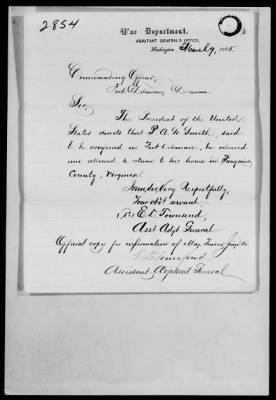 2854
War Department,
ADJUTANT GENERAL'S OFFICE,
Washington, March 9, 1865.
Commanding Officer,
Fort Delaware, Delaware
Sir,
The President of the United
States directs that P. A. L. Smith, said
to be confined in Fort Delaware, be released
and allowed to return to his home in Fauquier
County, Virginia.
I am, Sir, Very Respectfully,
Your obt servant
E. D. Townsend,
Asst Adjt General
Official copy for information of
E. D. Townsend
Assistant Adjutant General